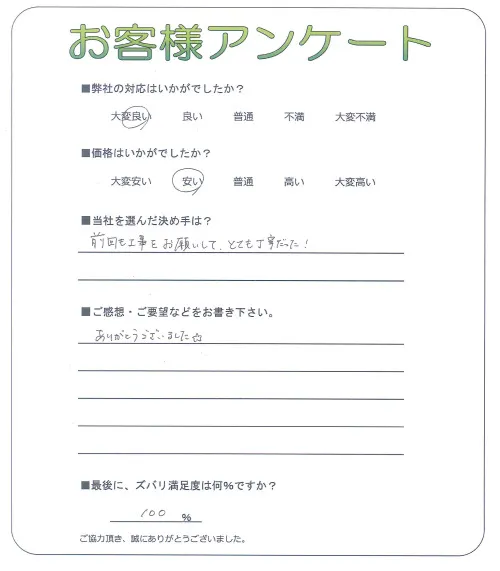 お客様アンケート
■弊社の対応はいかがでしたか？
大変良い 良い 普通 不満 大変不満
■価格はいかがでしたか？
大変安い 安い 普通 高い 大変高い
■当社を選んだ決め手は？
前回も工事をお願いして、とても丁寧だった！
■ご感想・ご要望などをお書き下さい。
ありがとうございました☆
■最後に、ズバリ満足度は何％ですか？
100 ％
ご協力頂き、誠にありがとうございました。